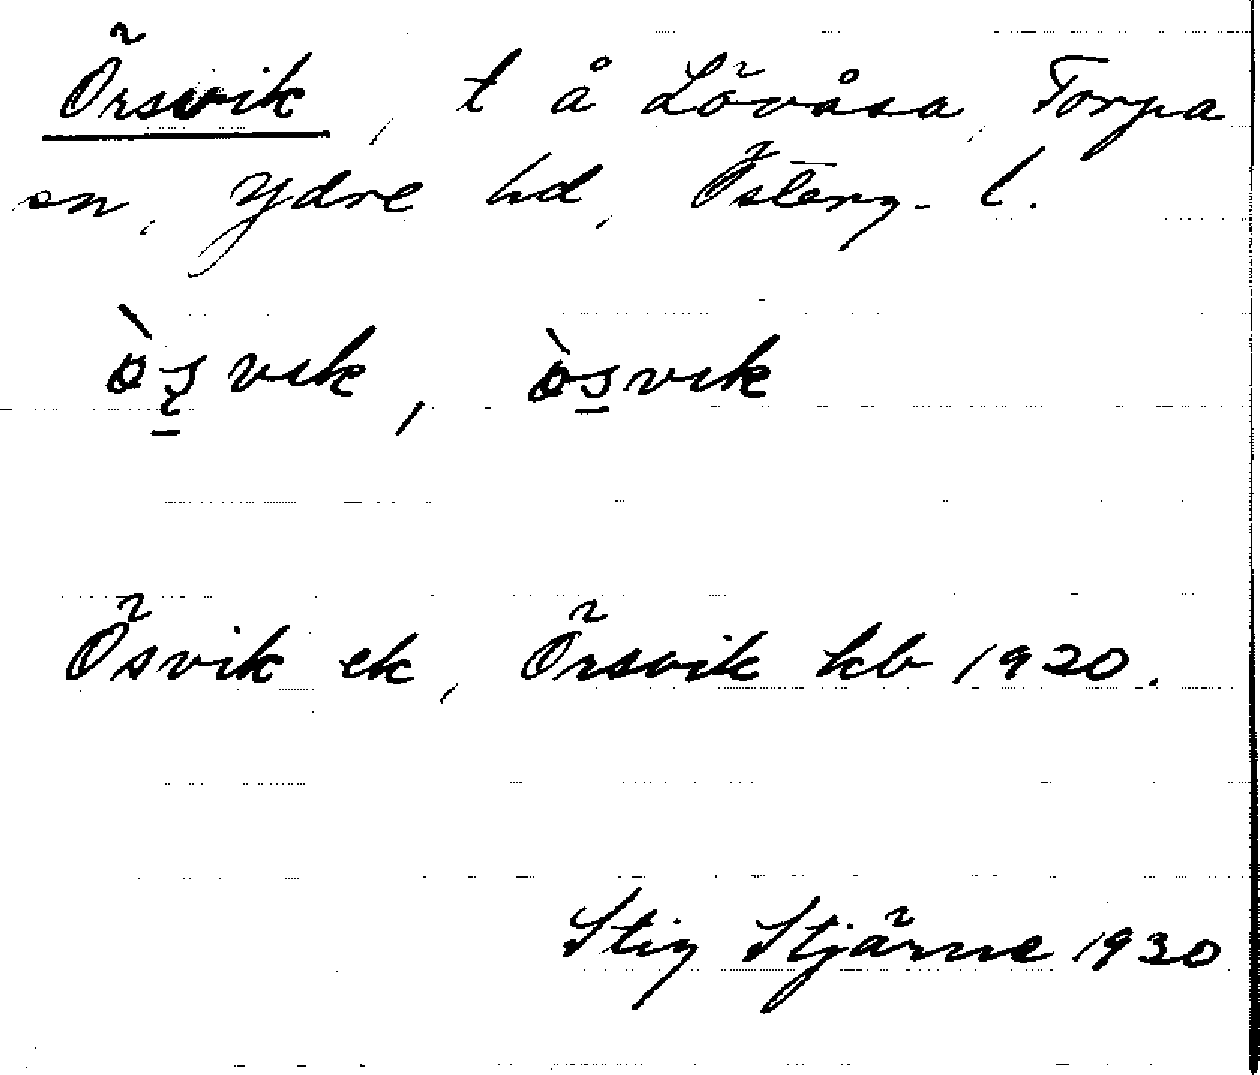 Örsvik, t å Lövåsa, Torpa
sn, Ydre hd, Österg. l.
ö̀s̱vik, ö̀s̱vik
Ösvik ek, Örsvik kb 1920.
Stig Stjärne 1930